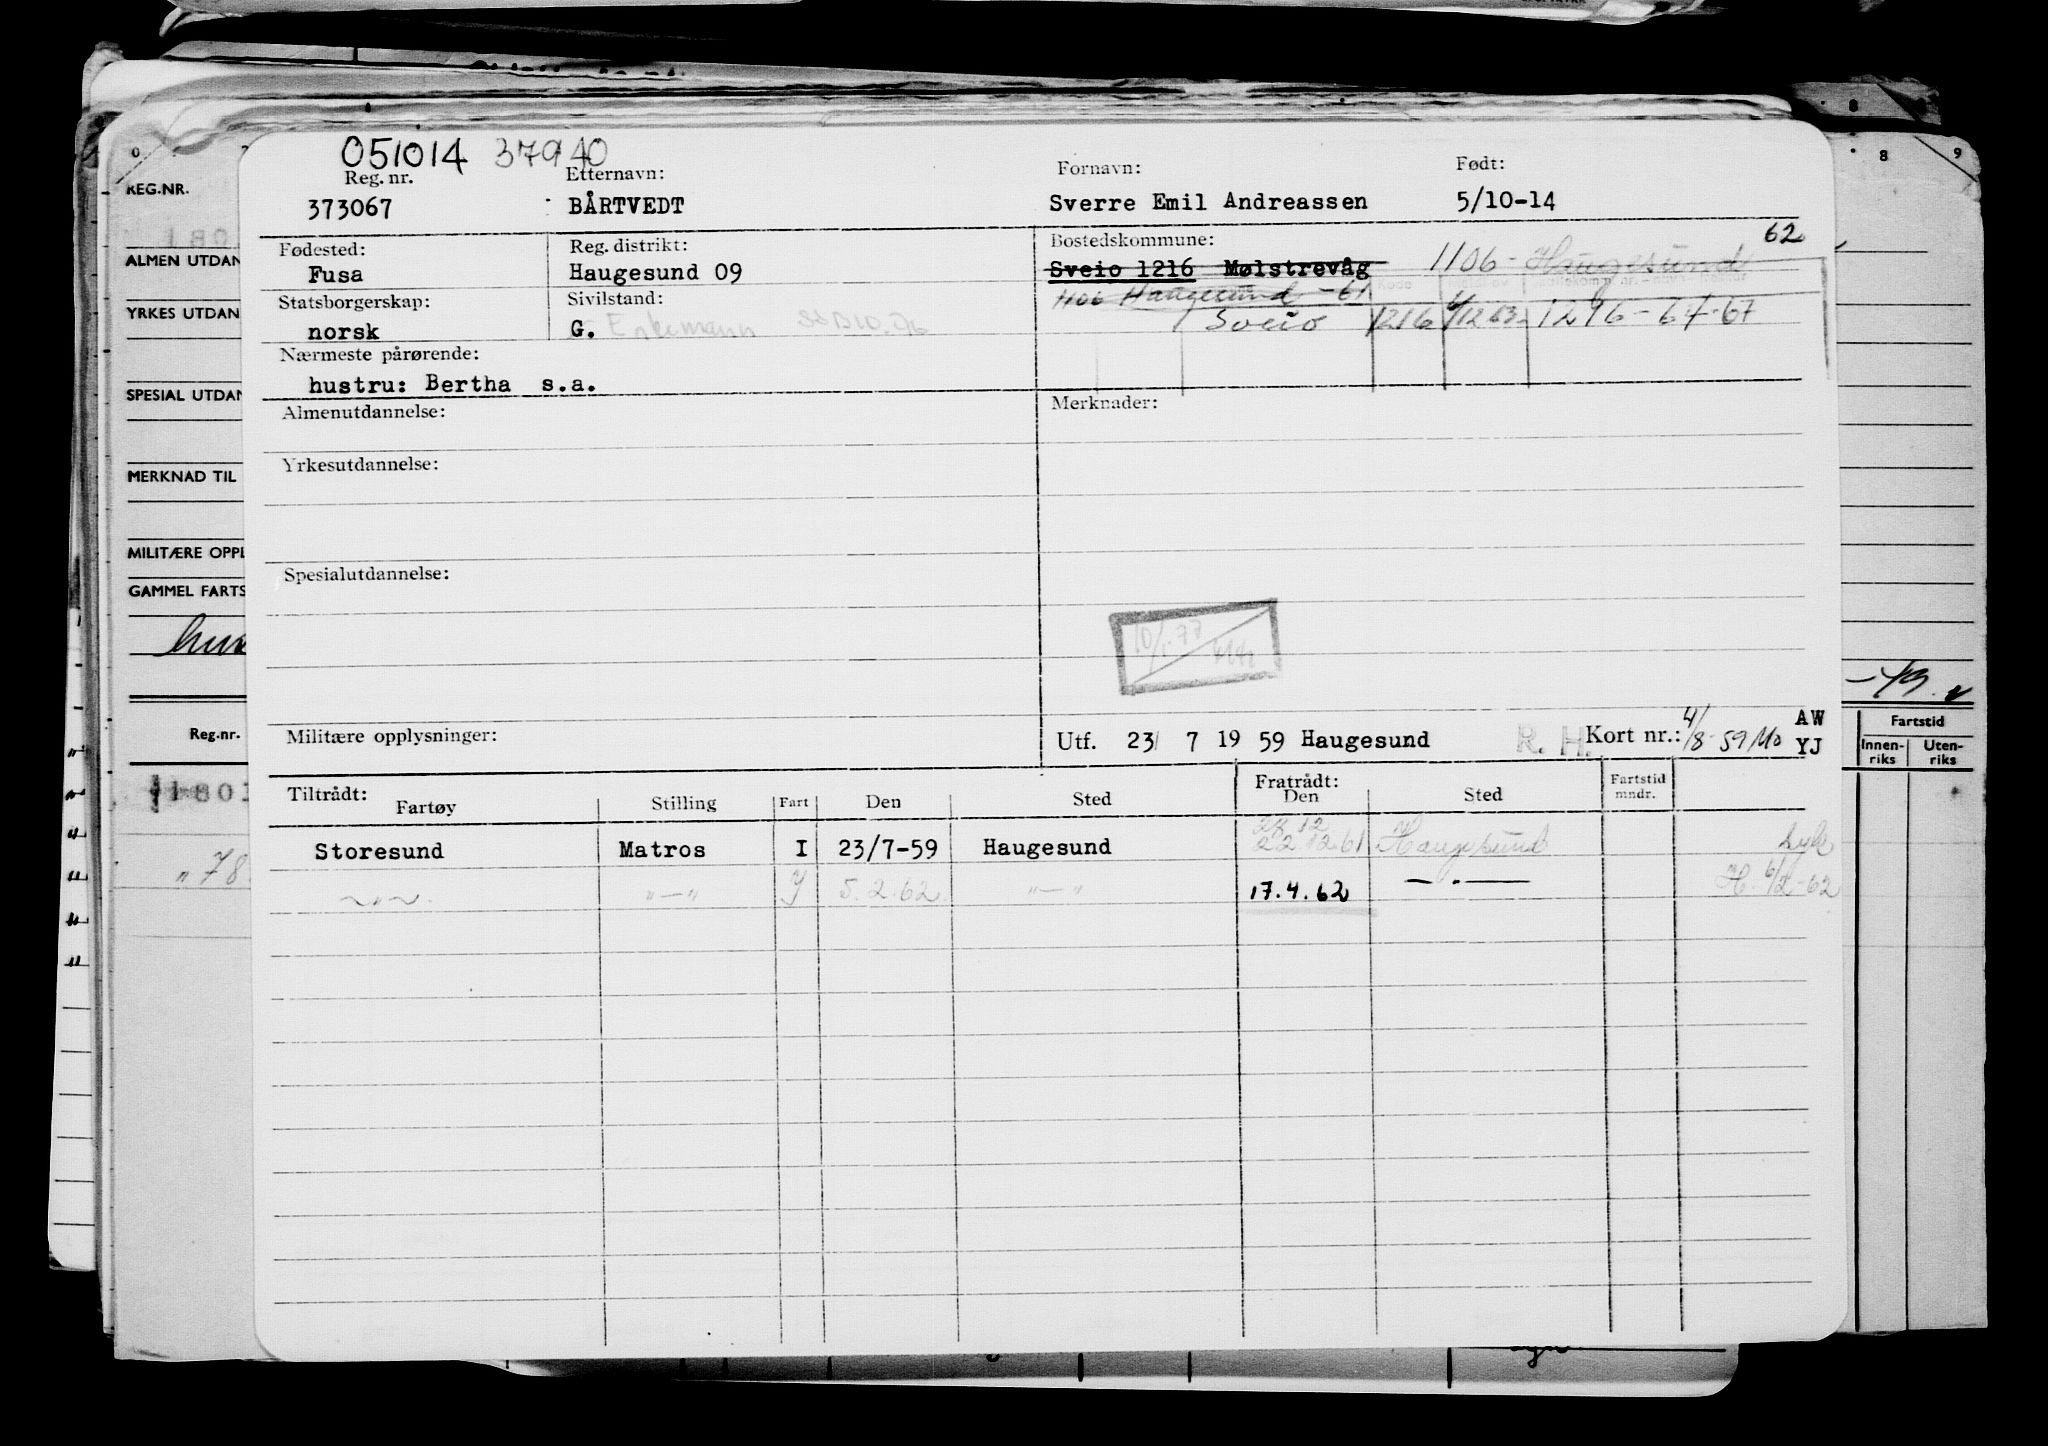 051014 37940
Reg. nr. Etternavn: Fornavn: Født:
373067 BÅRTVEDT Sverre Emil Andreassen 5/10-14
Fødested: Reg. distrikt: Bostedskommune: 62
Fusa Haugesund 09 Sveio 1216 Mølstrevåg 1106 - Haugesund
Statsborgerskap: Sivilstand: 1106 Haugesund - 61
norsk G. Enkemann Sveio 1216 1216 - 64-67
Nærmeste pårørende:
hustru: Bertha s.a.
Almenutdannelse: Merknader:
Yrkesutdannelse:
Spesialutdannelse:
Militære opplysninger: Utf. 23/ 7 19 59 Haugesund R. H. Kort nr.: 4/8-59 Mo AW YJ
Tiltrådt: Fratrådt:
Fartøy Stilling Fart Den Sted Den Sted Fartstid mndr.
28 12
Storesund Matros I 23/7-59 Haugesund 22 12.61 Haugesund
" " — " 5.2.62 " — " 17.4.62 — . — H. 6/2-62
REG.NR.
ALMEN UTDAN
YRKES UTDAN
SPESIAL UTDAN
MERKNAD TIL
MILITÆRE OPPL
GAMMEL FARTS
Reg.nr.
1801
"78
8 9
-49.
Fartstid
Innen-riks Uten-riks